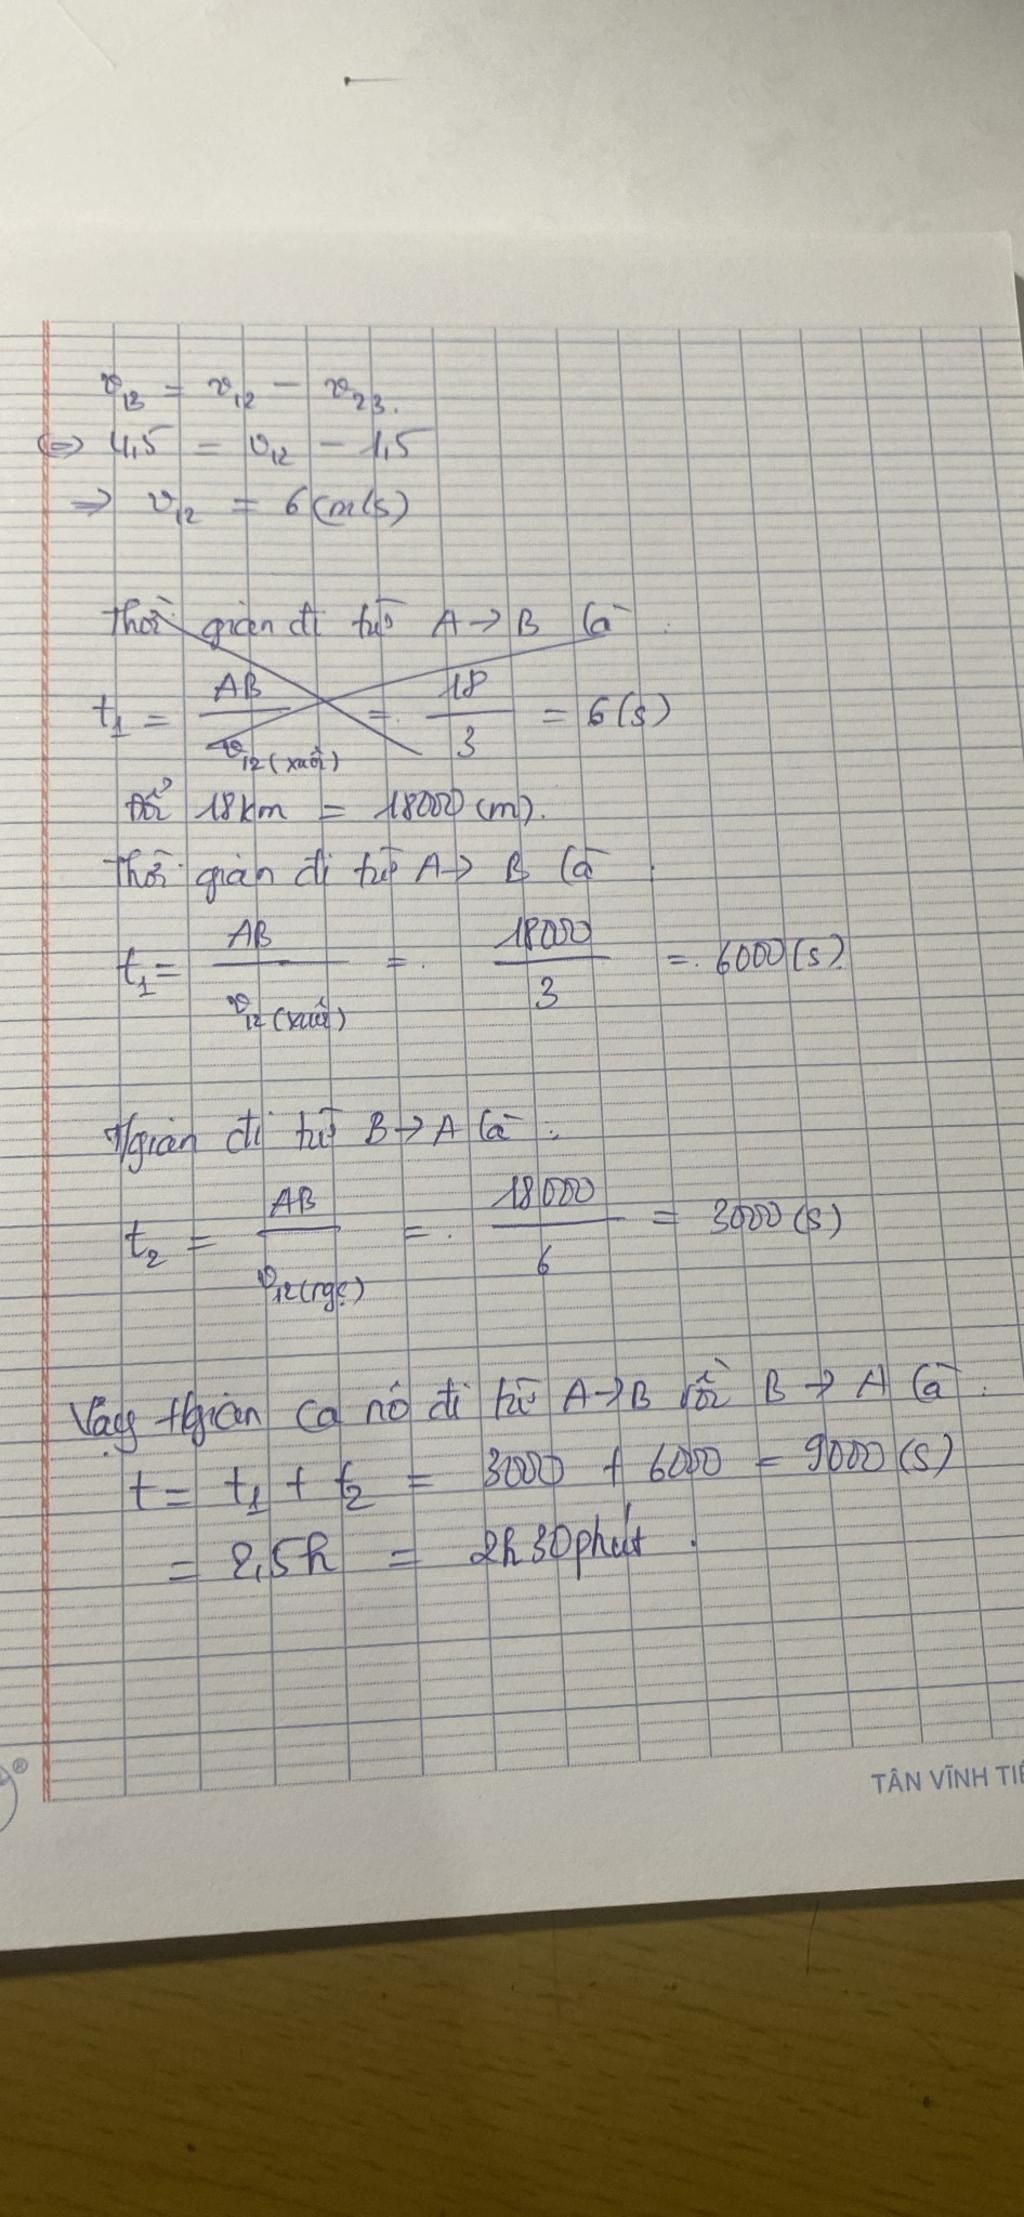 v₁₃ = v₁₂ - v₂₃.
⇔ 4,5 = v₁₂ - 1,5
⇒ v₁₂ = 6 (m/s)
Thời gian đi từ A → B là :
t₁ = AB / v₁₂ (xuôi) = 18 / 3 = 6 (s)
Đổi 18km = 18000 (m).
Thời gian đi từ A → B là :
t₁ = AB / v₁₂ (xuôi) = 18000 / 3 = 6000 (s).
T/gian đi từ B → A là :
t₂ = AB / v₁₂ (ngc) = 18000 / 6 = 3000 (s)
Vậy t/gian ca nô đi từ A → B rồi B → A là :
t = t₁ + t₂ = 3000 + 6000 = 9000 (s)
= 2,5h = 2h 30phút .
®
TÂN VĨNH TIẾ